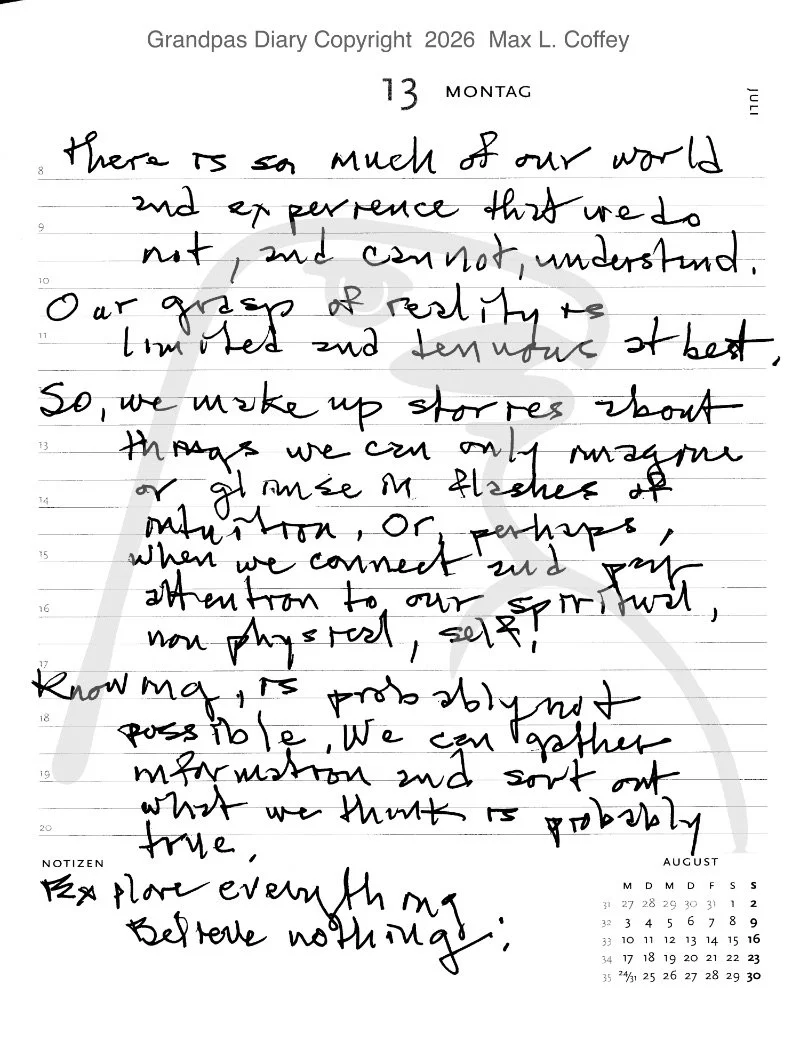 Grandpas Diary Copyright 2026 Max L. Coffey
13 MONTAG
JULI
there is so much of our world
and experience that we do
not, and cannot, understand.
Our grasp of reality is
limited and tenuous at best,
So, we make up stories about
things we can only imagine
or glimse in flashes of
intuition, Or, perhaps,
when we connect and pay
attention to our spiritual,
non physical, self!
Knowing, is probably not
possible, We can gather
information and sort out
what we think is probably
true,
Explore everything
Believe nothing!
8
9
10
11
13
14
15
16
17
18
19
20
NOTIZEN
AUGUST
M D M D F S S
31 27 28 29 30 31 1 2
32 3 4 5 6 7 8 9
33 10 11 12 13 14 15 16
34 17 18 19 20 21 22 23
35 24/31 25 26 27 28 29 30